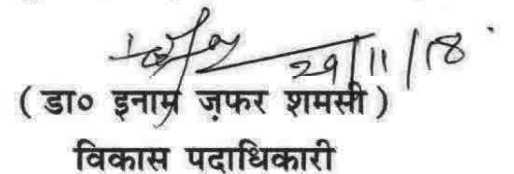 29/11/18
(डा० इनाम ज़फर शमसी)
विकास पदाधिकारी